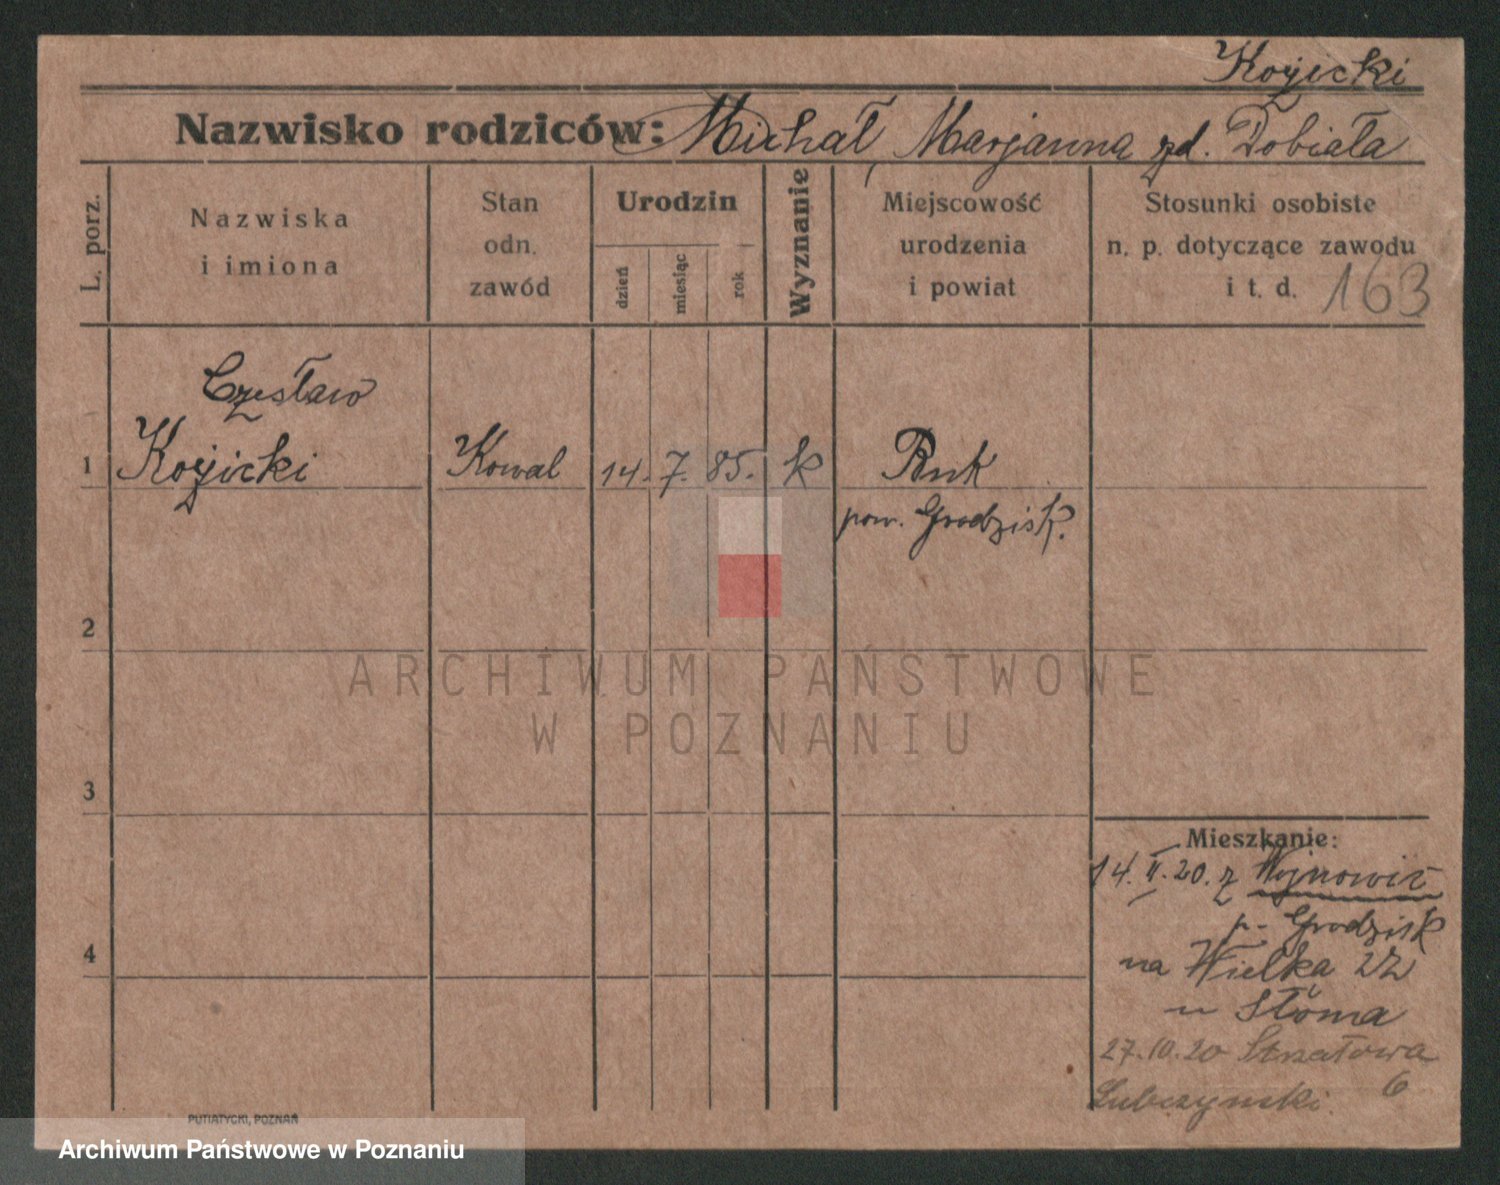 Kozicki
Nazwisko rodziców: Michał, Marjanna zd. Dobiała
L. porz.
Nazwiska
i imiona
Stan
odn.
zawód
Urodzin
dzień
miesiąc
rok
Wyznanie
Miejscowość
urodzenia
i powiat
Stosunki osobiste
n. p. dotyczące zawodu
i t. d. 163
Czesław
1 Kozicki Kowal 14. 7. 85. k Buk
pow. Grodzisk.
2
ARCHIWUM PAŃSTWOWE
W POZNANIU
3
Mieszkanie:
14. II. 20. z
p. Grodzisk
4
na Wielka 22
u Słoma
27.10.20 Strzałowa
Lubczynski 6
PUTIATYCKI, POZNAŃ
Archiwum Państwowe w Poznaniu